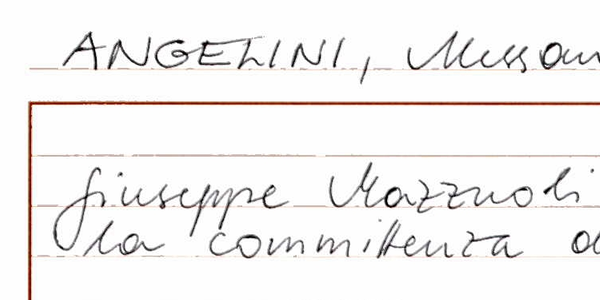 ANGELINI, Alessan
Giuseppe Mazzuoli
la committenza d